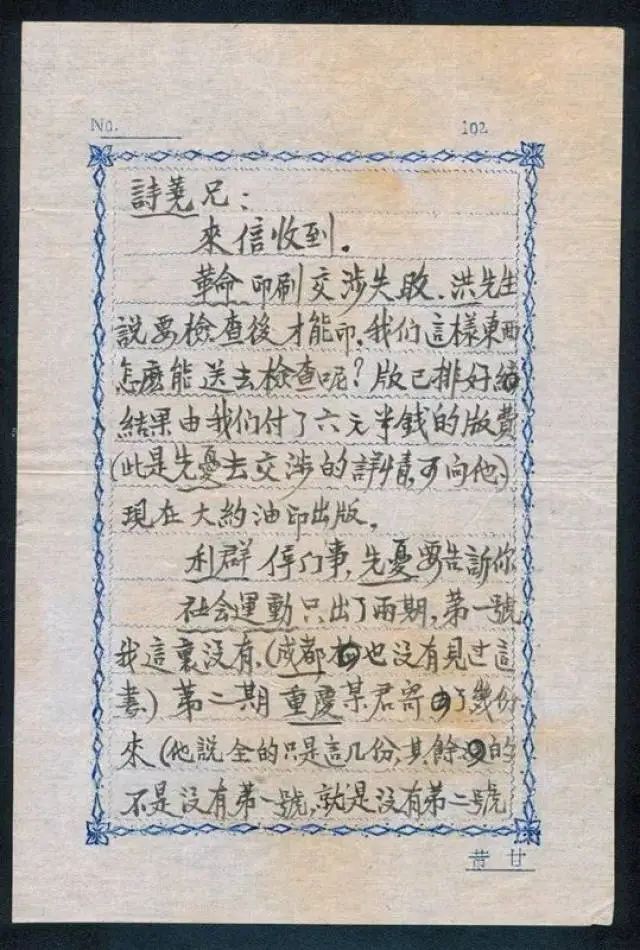 No. 102
詩蕘兄：
來信收到．
革命印刷交涉失敗．洪先生
說要檢查後才能印，我们這樣東西
怎麽能送去檢查呢？版已排好
結果由我们付了六元半钱的版費
（此是先憂去交涉的詳情，可向他）
現在大約油印出版．
利群停门事，先憂要告訴你
社会運動只出了兩期，第一號
我這裏没有．（成都也没有見过這
書）第二期重慶某君寄了幾份
來（他說全的只是這几份，其餘的
不是没有第一號，就是没有第二號
芾甘